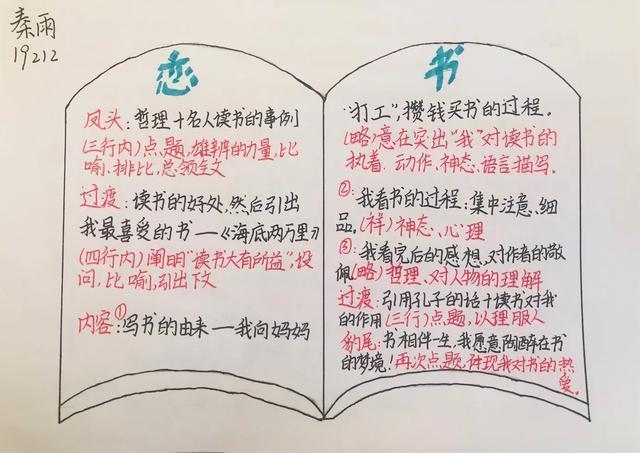 秦雨
19212
恋书
凤头：哲理+名人读书的事例
(三行内)点题，雄辨的力量，比
喻、排比，总领全文
过渡：读书的好处，然后引出
我最喜爱的书——《海底两万里》
(四行内)阐明"读书大有所益"，设
问，比喻，引出下文
内容：①写书的由来——我向妈妈
"打工"，攒钱买书的过程。
(略)意在突出"我"对读书的
执着．动作、神态、语言描写。
②：我看书的过程：集中注意、细
品。(祥)神态，心理
③：我看完后的感想，对作者的敬
佩(略)哲理，对人物的理解
过渡：引用孔子的话+读书对我
的作用(三行)点题，以理服人
豹尾：书相伴一生，我愿意陶醉在书
的梦境！再次点题，体现我对书的热
爱。